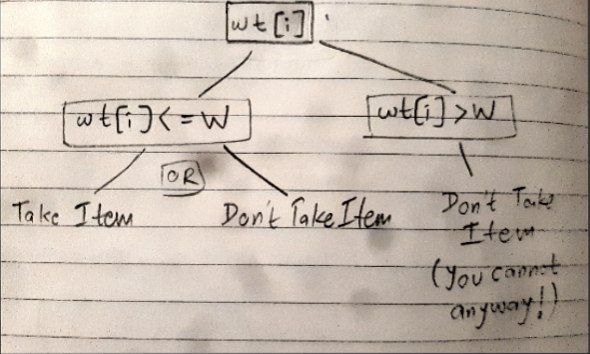 wt[i]
wt[i]<=W
wt[i]>W
OR
Take Item
Don't Take Item
Don't Take
Item
(you cannot
anyway!)